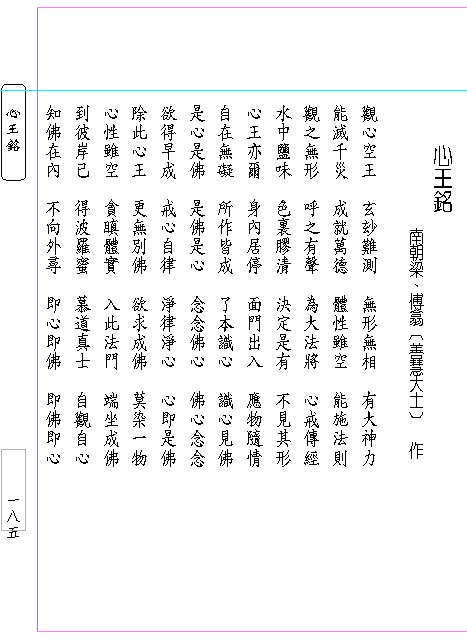 心王銘
南朝梁、傅翕〔善慧大士〕 作
觀心空王 玄玅難測 無形無相 有大神力
能滅千災 成就萬德 體性雖空 能施法則
觀之無形 呼之有聲 為大法將 心戒傳經
水中鹽味 色裏膠清 決定是有 不見其形
心王亦爾 身內居停 面門出入 應物隨情
自在無礙 所作皆成 了本識心 識心見佛
是心是佛 是佛是心 念念佛心 佛心念念
欲得早成 戒心自律 淨律淨心 心即是佛
除此心王 更無別佛 欲求成佛 莫染一物
心性雖空 貪瞋體實 入此法門 端坐成佛
到彼岸已 得波羅蜜 慕道真士 自觀自心
知佛在內 不向外尋 即心即佛 即佛即心
心王銘
一八五